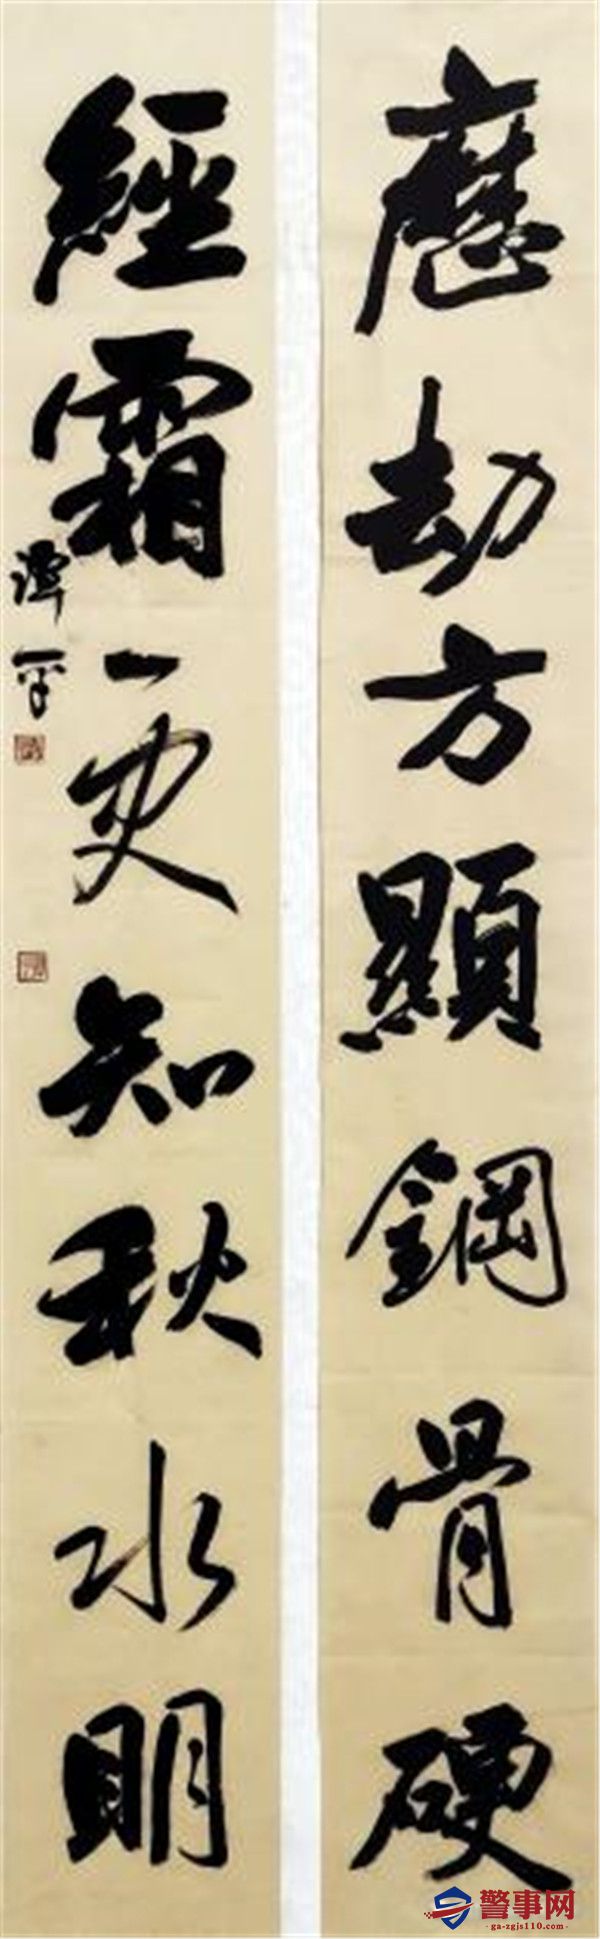 歷劫方顯鋼骨硬
經霜更知秋水明
譚平
警事网
-ga-zgjs110.com-